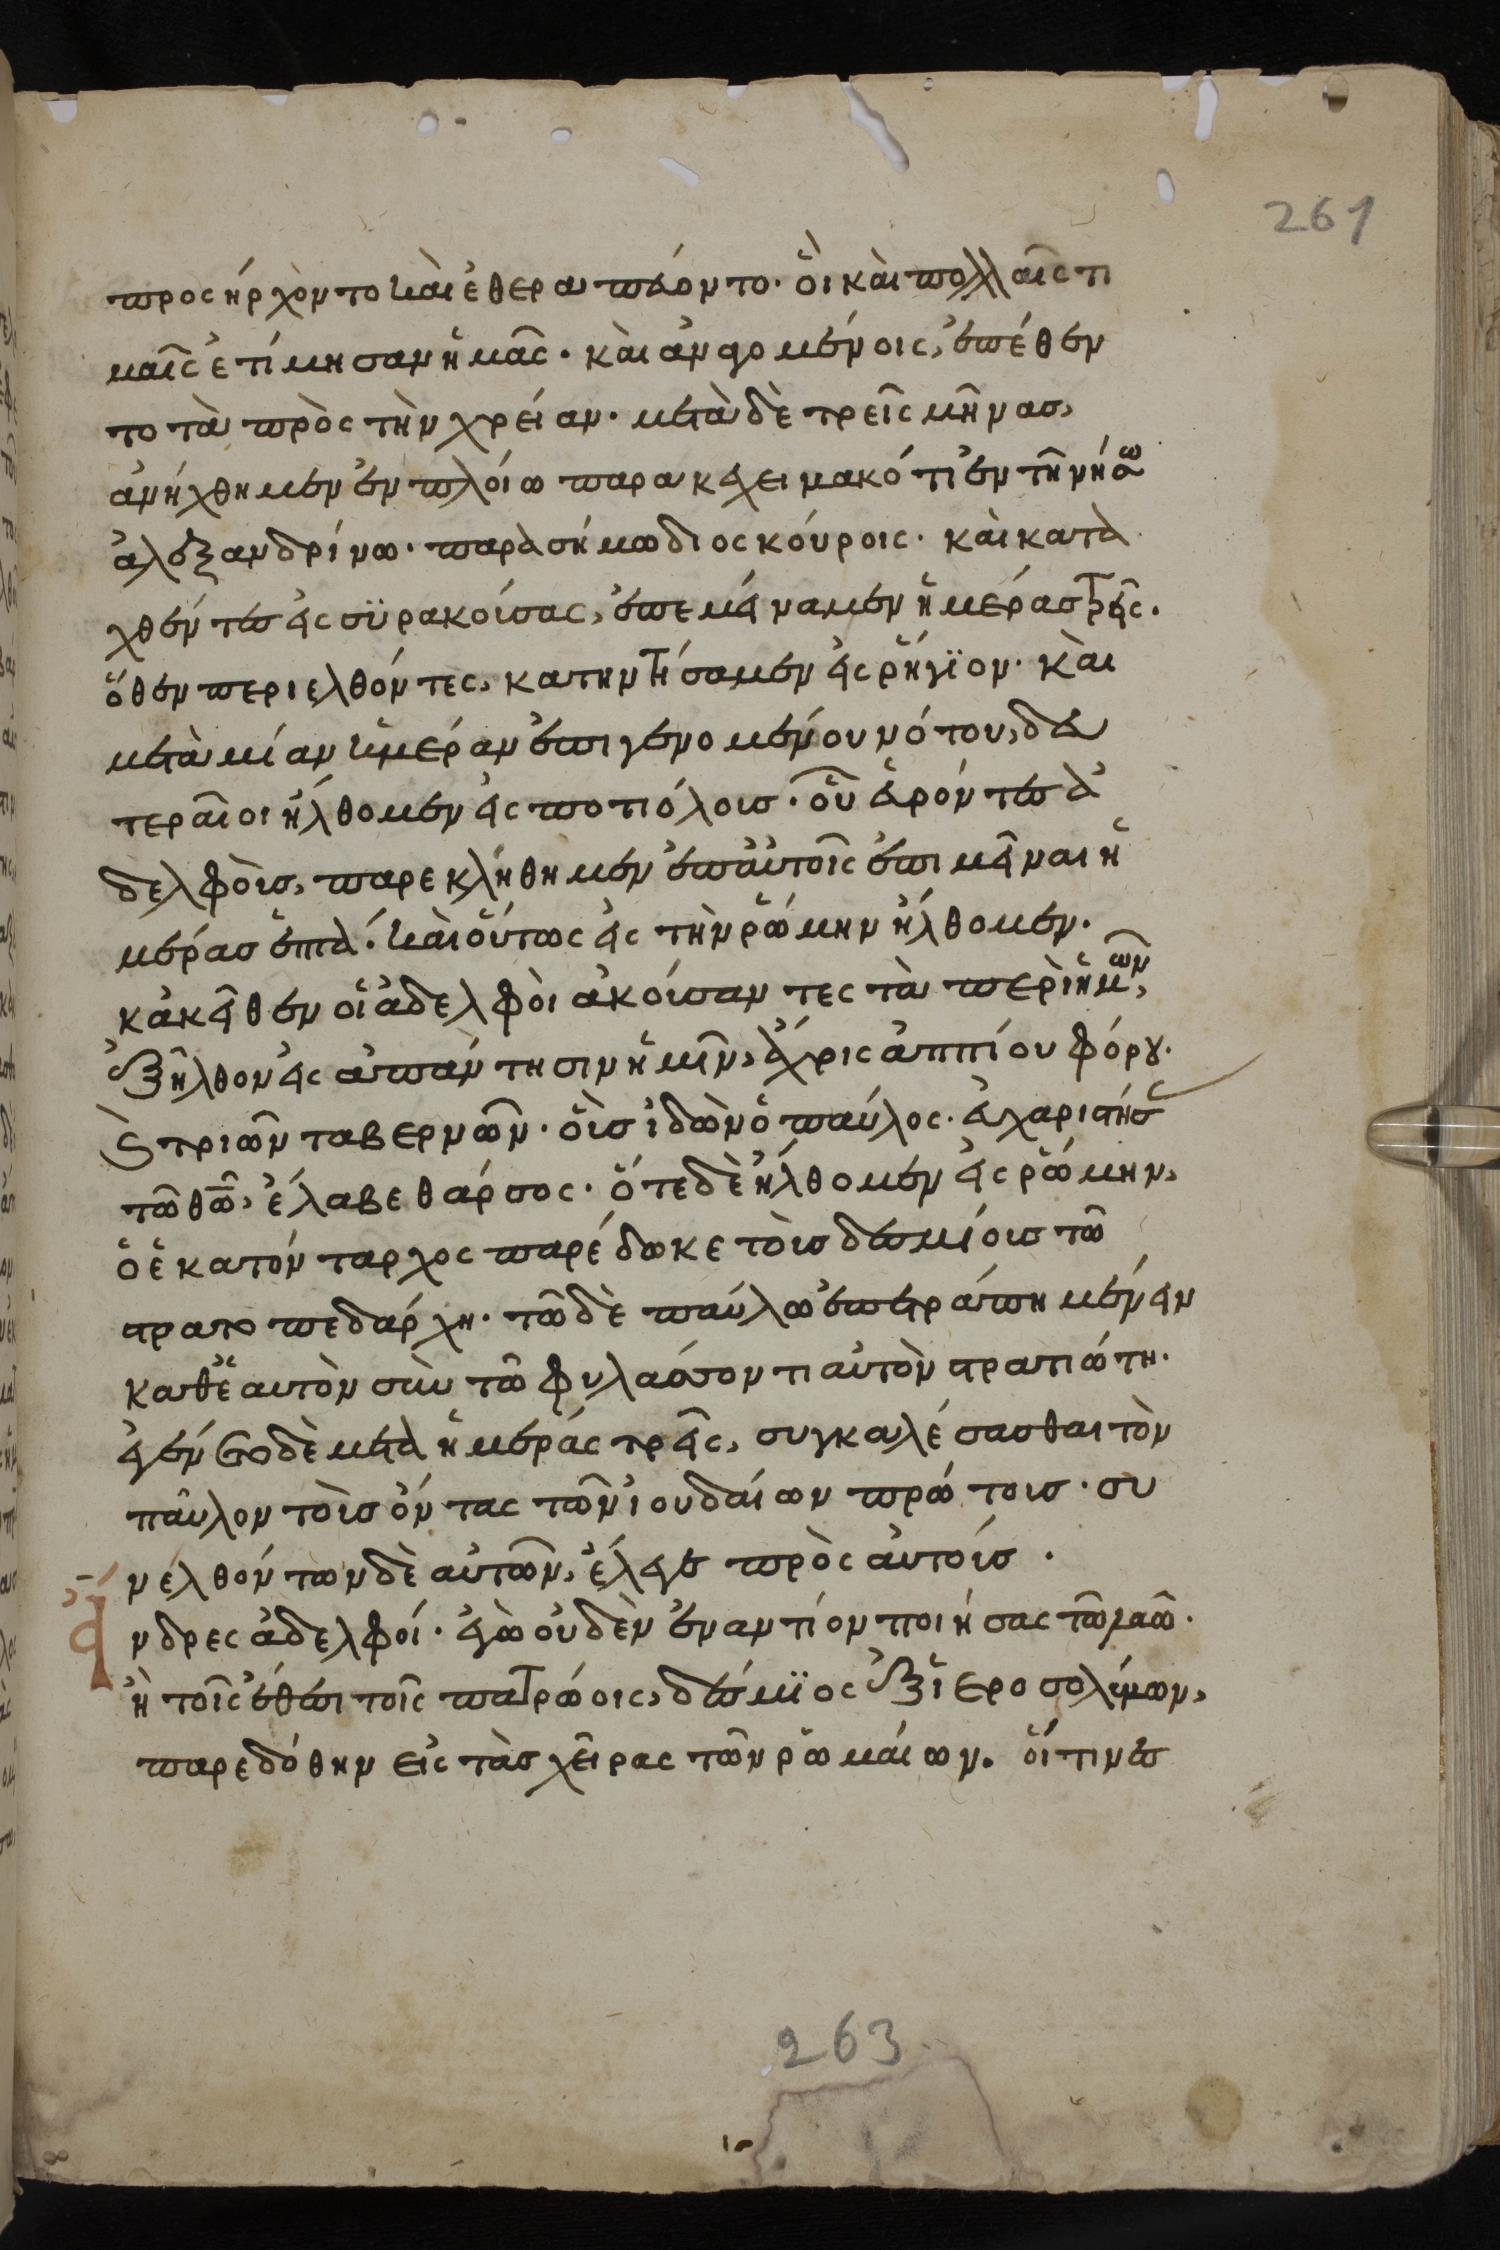 261
προσήρχοντο καὶ ἐθεραπεύοντο· οἳ καὶ πολλαῖς τι
μαῖς ἐτίμησαν ἡμᾶς· καὶ ἀναγομένοις, ἐπέθεν
το τὰ πρὸς τὴν χρείαν· μετὰ δὲ τρεῖς μῆνας,
ἀνήχθημεν ἐν πλοίω παρακεχειμακότι ἐν τῆ νήσω
ἀλεξανδρίνω· παρασήμω διοσκούροις· καὶ κατα
χθέντες εἰς συρακούσας, ἐπεμείναμεν ἡμέρας τρεῖς·
ὅθεν περιελθόντες, κατηντήσαμεν εἰς ῥήγϊον· καὶ
μετὰ μίαν ἡμέραν ἐπιγενομένου νότου, δευ
τεραῖοι ἤλθομεν εἰς ποτιόλους· οὗ εὑρόντες ἀ
δελφοὺς, παρεκλήθημεν ἐπ' αὐτοῖς ἐπιμεῖναι ἡ
μέρας ἑπτά· καὶ οὕτως εἰς τὴν ῥώμην ἤλθομεν·
κἀκεῖθεν οἱ ἀδελφοὶ ἀκούσαντες τὰ περὶ ἡμῶν,
ἐξῆλθον εἰς ἀπάντησιν ἡμῖν, ἄχρις ἀππίου φόρου·
καὶ τριῶν ταβερνῶν· οὓς ἰδὼν ὁ παύλος· εὐχαριστήσας
τῶ θῶ, ἔλαβε θάρσος· ὅτε δὲ ἤλθομεν εἰς ῥώμην,
ὁ ἑκατόνταρχος παρέδωκε τοὺς δεσμίους τῶ
στρατοπεδάρχη· τῶ δὲ παύλω ἐπετράπη μένειν
καθ' ἑαυτὸν σὺν τῶ φυλάσσοντι αὐτὸν στρατιώτη·
ἐγένετο δὲ μετὰ ἡμέρας τρεῖς, συγκαλέσασθαι τὸν
παῦλον τοὺς ὄντας τῶν ἰουδαίων πρώτους· συ
νελθόντων δὲ αὐτῶν, ἔλεγε πρὸς αὐτούς·
ἄνδρες ἀδελφοί· ἐγὼ οὐδὲν ἐναντίον ποιήσας τῶ λαῶ·
ἢ τοῖς ἔθεσι τοῖς πατρώοις, δέσμϊος ἐξ ἱεροσολύμων,
παρεδόθην εἰς τὰς χεῖρας τῶν ῥωμαίων· οἵτινες
263